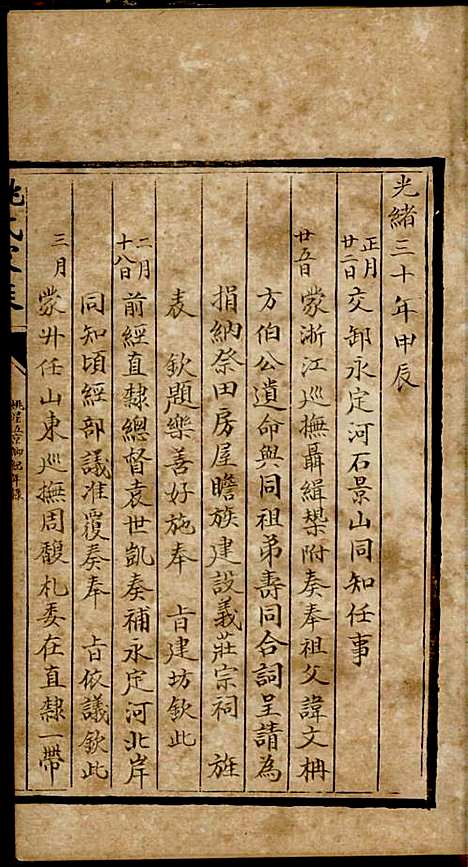 光緒三十年甲辰
正月廿二日交卸永定河石景山同知任事
廿五日蒙浙江巡撫聶緝槼附奏奉祖父諱文枬
方伯公遺命與同祖弟壽同合詞呈請為
捐納祭田房屋瞻族建設義莊宗祠 旌
表 欽題樂善好施奉 旨建坊欽此
二月十八日前經直隸總督袁世凱奏補永定河北岸
同知頃經部議准覆奏奉 旨依議欽此
三月 蒙升任山東巡撫周馥札委在直隸一帶